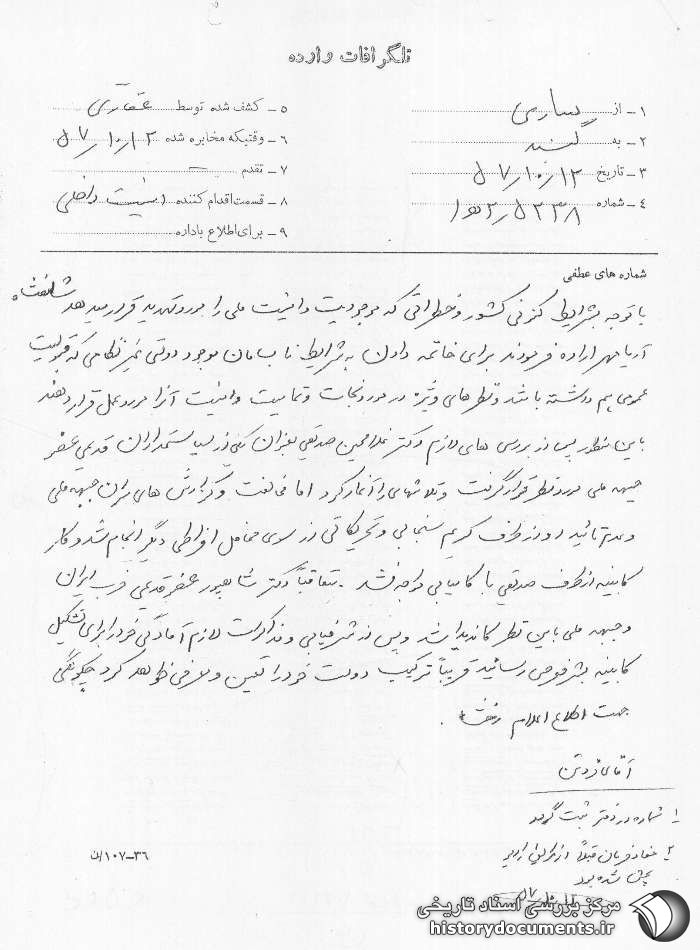 تلگرافات وارده
۱ – از ساری
۲ – به گنبد
۳ – تاریخ ۵۷/۱۰/۱۲
۴ – شماره ۵۲۳۸/۲ه۱
۵ – کشف شده توسط غفاری
۶ – وقتیکه مخابره شده ۵۷/۱۰/۱۲
۷ – تقدم –
۸ – قسمت اقدام کننده امنیت داخلی
۹ – برای اطلاع باداره
شماره های عطفی
با توجه بشرایط کنونی کشور و خطراتی که موجودیت و امنیت ملی را مورد تهدید قرار میدهد شاهنشاه
آریامهر اراده فرمودند برای خاتمه دادن به شرایط نابسامان موجود دولتی غیرنظامی که مقبولیت
عمومی هم داشته باشد و نظرهای ویژه در مورد نجات و تمامیت و امنیت آنرا مورد عمل قرار دهند
باین منظور پس از بررسی های لازم دکتر غلامحسین صدیقی بعنوان یکی از سیاستمداران قدیمی عضو
جبهه ملی مورد نظر قرار گرفت و تلاشهای را آغاز کرد اما مخالفت و گزارش های سران جبهه ملی
و عدم تائید او از طرف کریم سنجابی و تحریکاتی از سوی محافل افراطی دیگر انجام شد و کار
کابینه از طرف صدیقی با کامیابی مواجه نشد. متعاقباً دکتر شاهپور عضو قدیمی حزب ایران
و جبهه ملی باین نظر کاندیدا شد و پس از شرفیابی و مذاکرات لازم آمادگی خود را برای تشکیل
کابینه بشرفعرض رسانید قریباً ترکیب دولت خود را تعیین و معرفی خواهد کرد چگونگی
جهت اطلاع اعلام
آقای
۱ شماره در دفتر ثبت گردد
۲ قبلاً از
پخش شده بود
۳۶–۱۰۷/ن
مرکز بررسی اسناد تاریخی
historydocuments.ir